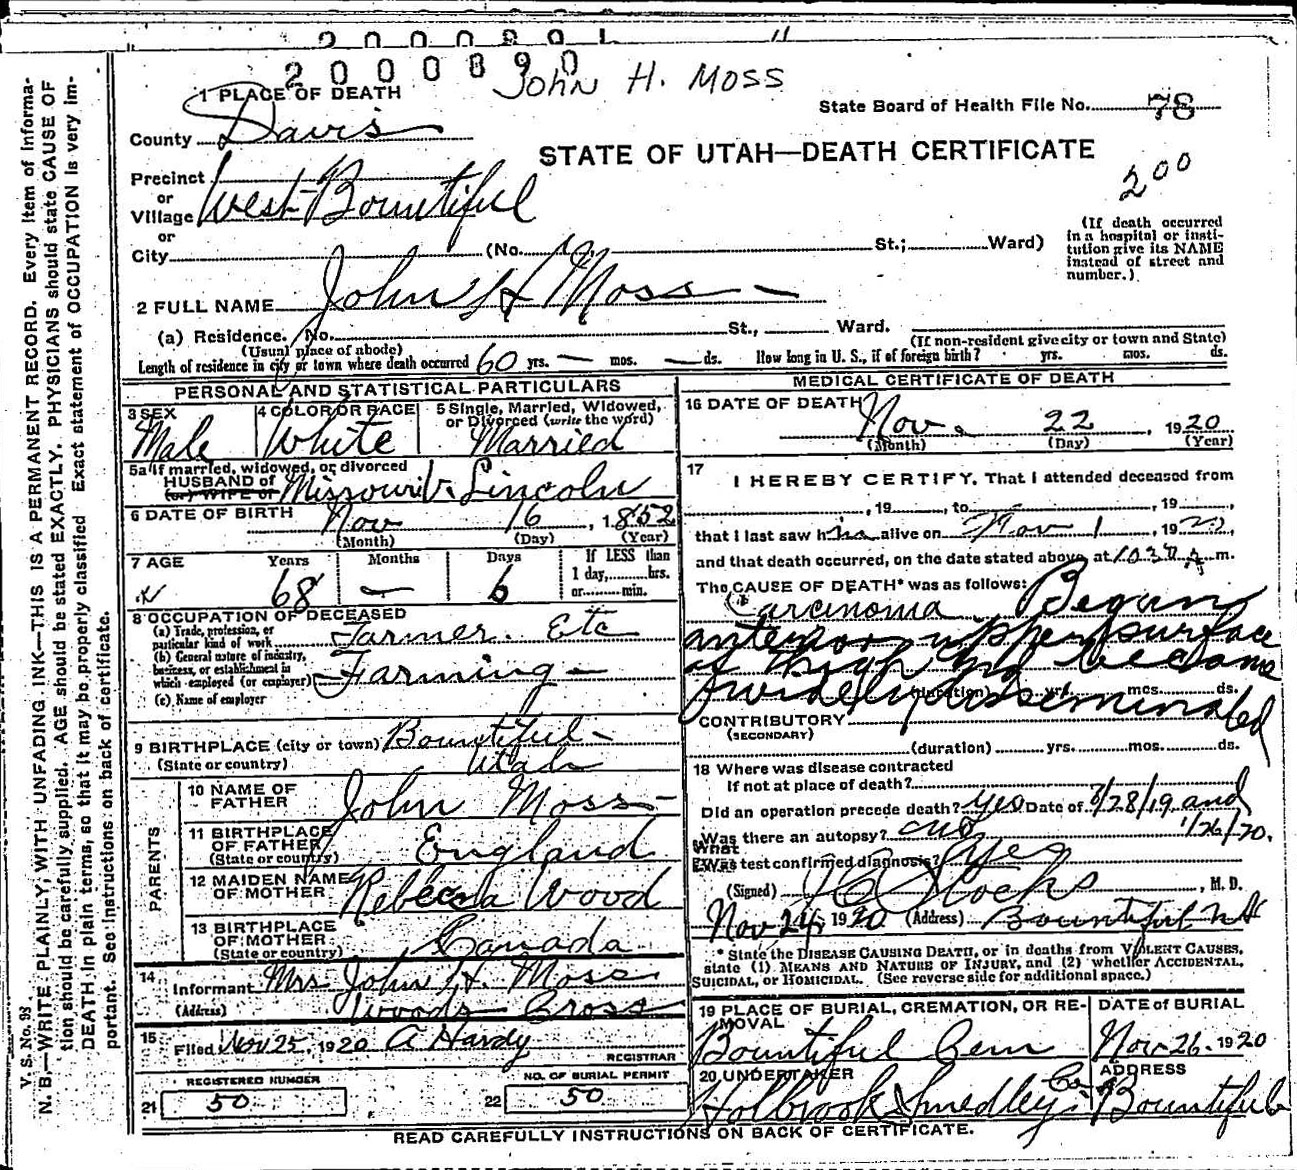 2000890
John H. Moss
1 PLACE OF DEATH
State Board of Health File No. 78
County Davis
STATE OF UTAH—DEATH CERTIFICATE
2 00
Precinct
or
Village West Bountiful
or
City (No. St.; Ward)
(If death occurred in a hospital or institution give its NAME instead of street and number.)
2 FULL NAME John H Moss
(a) Residence. No. St., Ward.
(Usual place of abode) (If non-resident give city or town and State)
Length of residence in city or town where death occurred 60 yrs. — mos. — ds. How long in U. S., if of foreign birth? yrs. mos. ds.
PERSONAL AND STATISTICAL PARTICULARS
3 SEX Male
4 COLOR OR RACE White
5 Single, Married, Widowed, or Divorced (write the word) Married
5a If married, widowed, or divorced
HUSBAND of
(or) WIFE of Missouri V. Lincoln
6 DATE OF BIRTH Nov 16, 1852
(Month) (Day) (Year)
7 AGE Years Months Days If LESS than
68 — 6 1 day, hrs.
or min.
8 OCCUPATION OF DECEASED
(a) Trade, profession, or particular kind of work Farmer. Etc
(b) General nature of industry, business, or establishment in which employed (or employer) Farming —
(c) Name of employer
9 BIRTHPLACE (city or town) Bountiful -
(State or country) Utah
PARENTS
10 NAME OF FATHER John Moss
11 BIRTHPLACE OF FATHER (State or country) England
12 MAIDEN NAME OF MOTHER Rebecca Wood
13 BIRTHPLACE OF MOTHER (State or country) Canada
14
Informant Mrs John H. Moss
(Address) Woods Cross
15
Filed Nov 25, 1920 A Hardy
REGISTRAR
REGISTERED NUMBER
21 50
NO. OF BURIAL PERMIT
22 50
MEDICAL CERTIFICATE OF DEATH
16 DATE OF DEATH Nov. 22, 1920
(Month) (Day) (Year)
17 I HEREBY CERTIFY, That I attended deceased from
, 19 , to , 19 ,
that I last saw him alive on Nov 1, 19
and that death occurred, on the date stated above, at 1030 A m.
The CAUSE OF DEATH* was as follows:
Carcinoma Began
anterior upper surface
of thigh and became
widely disseminated
(duration) yrs. mos. ds.
CONTRIBUTORY
(SECONDARY)
(duration) yrs. mos. ds.
18 Where was disease contracted
If not at place of death?
Did an operation precede death? yes Date of /28/19 and
1/26/20.
Was there an autopsy?
What test confirmed diagnosis?
(Signed) Stocks, M. D.
Nov 24, 1920 (Address) Bountiful
* State the DISEASE CAUSING DEATH, or in deaths from VIOLENT CAUSES, state (1) MEANS AND NATURE OF INJURY, and (2) whether ACCIDENTAL, SUICIDAL, or HOMICIDAL. (See reverse side for additional space.)
19 PLACE OF BURIAL, CREMATION, OR REMOVAL
Bountiful Cem
DATE of BURIAL
Nov 26. 1920
20 UNDERTAKER
Holbrook Smedley Co.
ADDRESS
Bountiful
READ CAREFULLY INSTRUCTIONS ON BACK OF CERTIFICATE.
V. S. No. 98
N. B.—WRITE PLAINLY, WITH UNFADING INK—THIS IS A PERMANENT RECORD. Every item of information should be carefully supplied. AGE should be stated EXACTLY. PHYSICIANS should state CAUSE OF DEATH in plain terms, so that it may be properly classified. Exact statement of OCCUPATION is very important. See instructions on back of certificate.